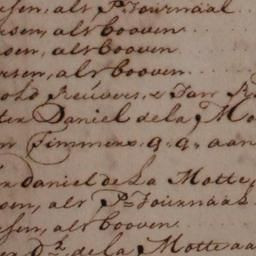 esen, als P.r Journaal
rsen, als booven
sen, als booven
ersen, als booven
old Reuvers, & Jan
ter Daniel de la Mo
n Timmers q.q. aan
r Daniel de La Motte,
sen, als P.r Journaal
sen, als booven
er D.l de la Motte aa